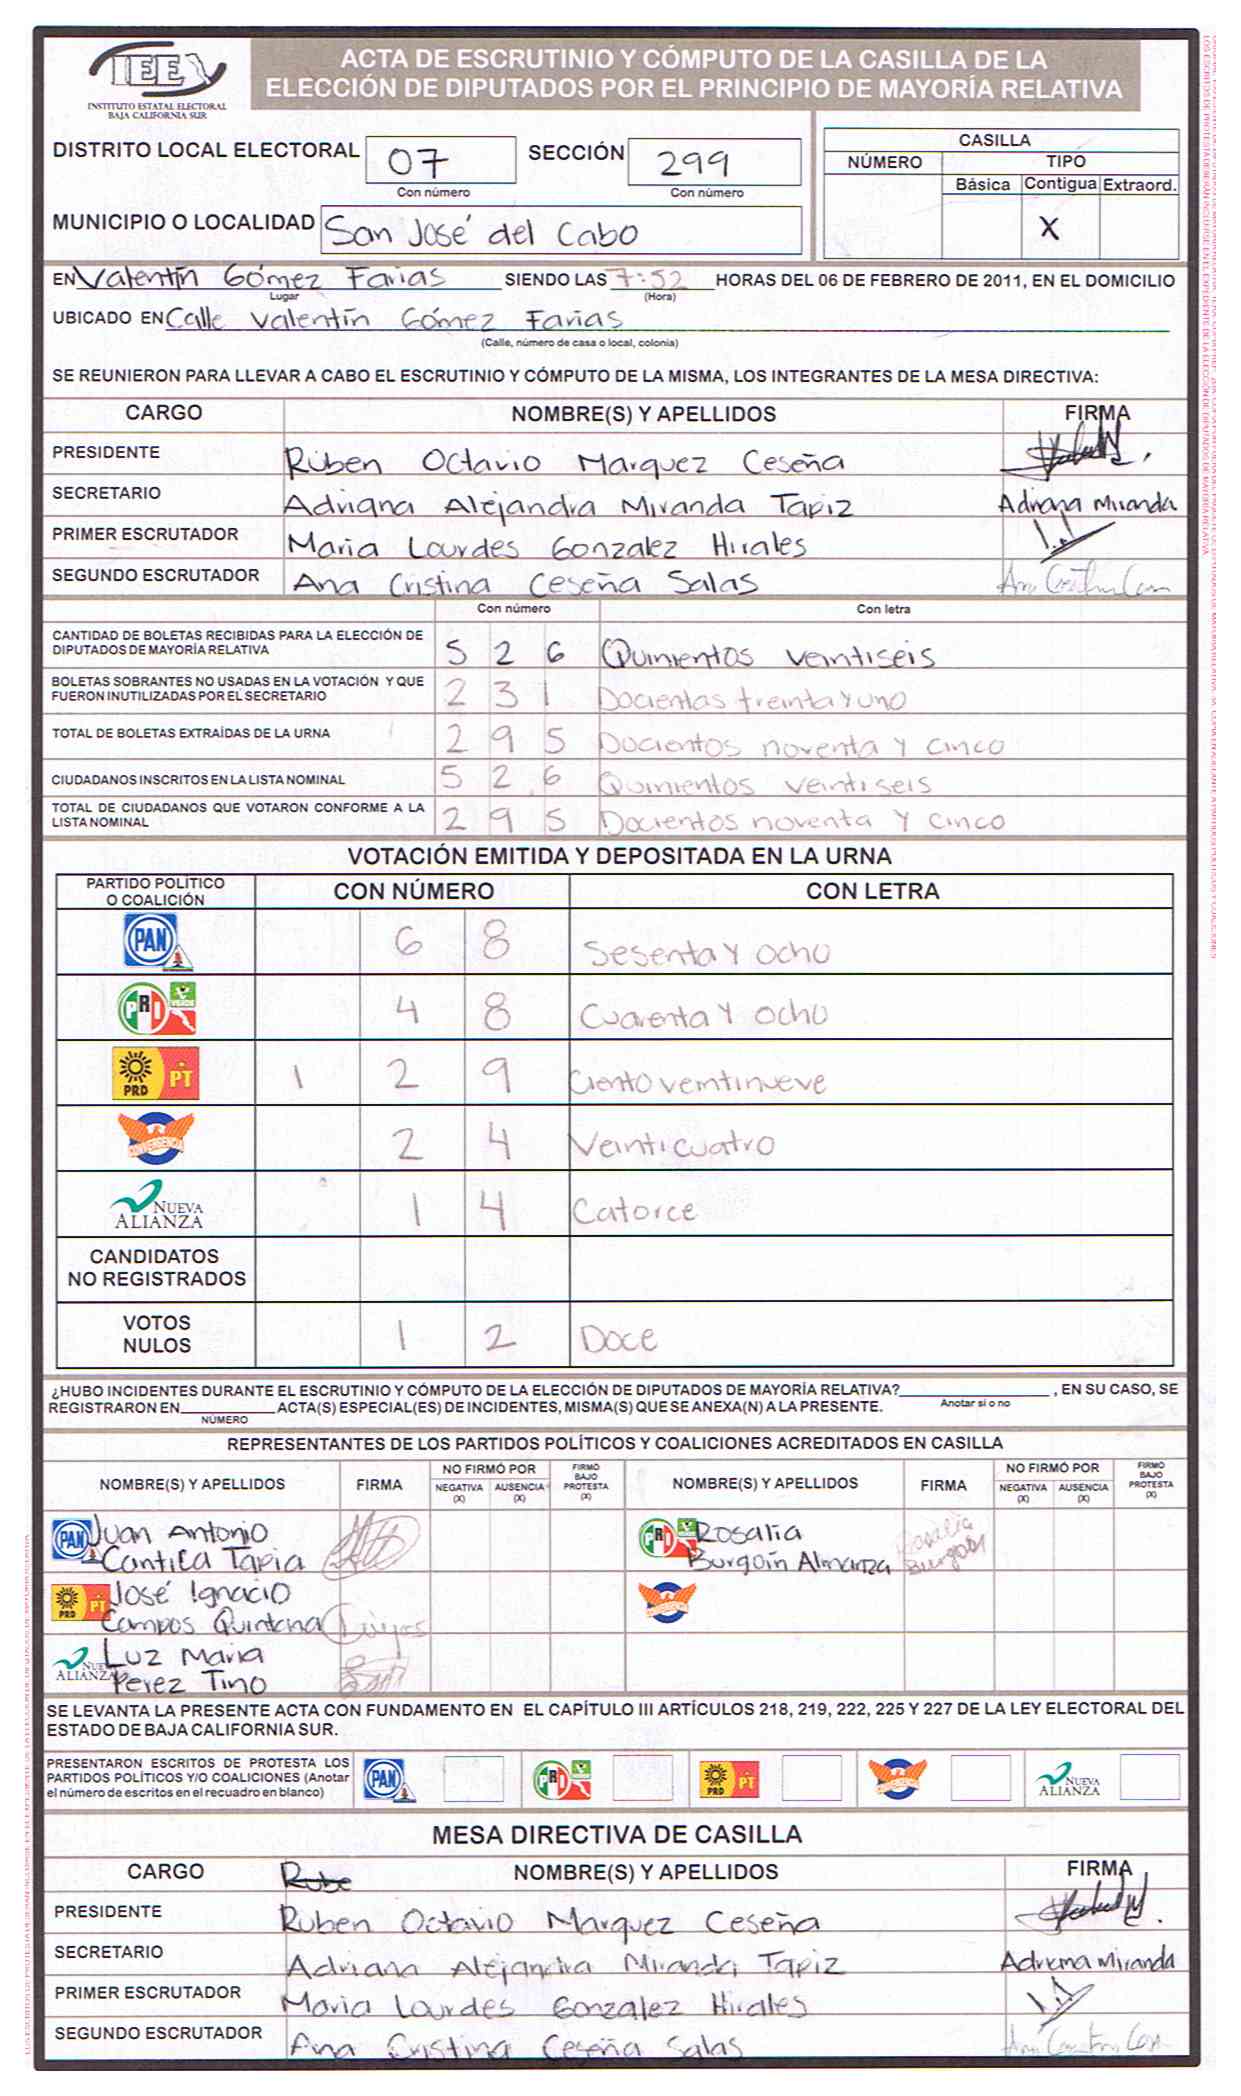 IEE
INSTITUTO ESTATAL ELECTORAL
BAJA CALIFORNIA SUR
ACTA DE ESCRUTINIO Y CÓMPUTO DE LA CASILLA DE LA
ELECCIÓN DE DIPUTADOS POR EL PRINCIPIO DE MAYORÍA RELATIVA
DISTRITO LOCAL ELECTORAL 07 SECCIÓN 299
Con número Con número
MUNICIPIO O LOCALIDAD San José del Cabo
CASILLA
NÚMERO TIPO
Básica Contigua Extraord.
X
EN Valentín Gómez Farias SIENDO LAS 7:52 HORAS DEL 06 DE FEBRERO DE 2011, EN EL DOMICILIO
Lugar (Hora)
UBICADO EN Calle Valentín Gómez Farías
(Calle, número de casa o local, colonia)
SE REUNIERON PARA LLEVAR A CABO EL ESCRUTINIO Y CÓMPUTO DE LA MISMA, LOS INTEGRANTES DE LA MESA DIRECTIVA:
CARGO NOMBRE(S) Y APELLIDOS FIRMA
PRESIDENTE Rúben Octavio Marquez Ceseña
SECRETARIO Adriana Alejandra Miranda Tapiz Adriana Miranda
PRIMER ESCRUTADOR Maria Lourdes Gonzalez Hirales
SEGUNDO ESCRUTADOR Ana Cristina Ceseña Salas
Con número Con letra
CANTIDAD DE BOLETAS RECIBIDAS PARA LA ELECCIÓN DE
DIPUTADOS DE MAYORÍA RELATIVA 5 2 6 Quinientos veintiseis
BOLETAS SOBRANTES NO USADAS EN LA VOTACIÓN Y QUE
FUERON INUTILIZADAS POR EL SECRETARIO 2 3 1 Docientas treinta y uno
TOTAL DE BOLETAS EXTRAÍDAS DE LA URNA 2 9 5 Docientos noventa y cinco
CIUDADANOS INSCRITOS EN LA LISTA NOMINAL 5 2 6 Quinientos veintiseis
TOTAL DE CIUDADANOS QUE VOTARON CONFORME A LA
LISTA NOMINAL 2 9 5 Docientos noventa y cinco
VOTACIÓN EMITIDA Y DEPOSITADA EN LA URNA
PARTIDO POLÍTICO
O COALICIÓN CON NÚMERO CON LETRA
PAN 6 8 Sesenta y ocho
PRI VERDE 4 8 Cuarenta y ocho
PRD PT 1 2 9 Ciento veintinueve
CONVERGENCIA 2 4 Veinticuatro
NUEVA
ALIANZA 1 4 Catorce
CANDIDATOS
NO REGISTRADOS
VOTOS
NULOS 1 2 Doce
¿HUBO INCIDENTES DURANTE EL ESCRUTINIO Y CÓMPUTO DE LA ELECCIÓN DE DIPUTADOS DE MAYORÍA RELATIVA? , EN SU CASO, SE
Anotar si o no
REGISTRARON EN ACTA(S) ESPECIAL(ES) DE INCIDENTES, MISMA(S) QUE SE ANEXA(N) A LA PRESENTE.
NÚMERO
REPRESENTANTES DE LOS PARTIDOS POLÍTICOS Y COALICIONES ACREDITADOS EN CASILLA
NOMBRE(S) Y APELLIDOS FIRMA NO FIRMÓ POR NEGATIVA (X) AUSENCIA (X) FIRMÓ BAJO PROTESTA (X) NOMBRE(S) Y APELLIDOS FIRMA NO FIRMÓ POR NEGATIVA (X) AUSENCIA (X) FIRMÓ BAJO PROTESTA (X)
PAN Juan Antonio
Cantica Tapia
PRI VERDE Rosalia
Burgoín Almanza Rosalia Burgoín
PRD PT José Ignacio
Campos Quintana
CONVERGENCIA
NUEVA ALIANZA Luz Maria
Perez Tino
SE LEVANTA LA PRESENTE ACTA CON FUNDAMENTO EN EL CAPÍTULO III ARTÍCULOS 218, 219, 222, 225 Y 227 DE LA LEY ELECTORAL DEL
ESTADO DE BAJA CALIFORNIA SUR.
PRESENTARON ESCRITOS DE PROTESTA LOS
PARTIDOS POLÍTICOS Y/O COALICIONES (Anotar
el número de escritos en el recuadro en blanco)
PAN PRI PRD PT CONVERGENCIA NUEVA ALIANZA
MESA DIRECTIVA DE CASILLA
CARGO Rube NOMBRE(S) Y APELLIDOS FIRMA
PRESIDENTE Ruben Octavio Marquez Ceseña
SECRETARIO Adriana Alejandra Miranda Tapiz Adriana Miranda
PRIMER ESCRUTADOR Maria Lourdes Gonzalez Hirales
SEGUNDO ESCRUTADOR Ana Cristina Ceseña Salas